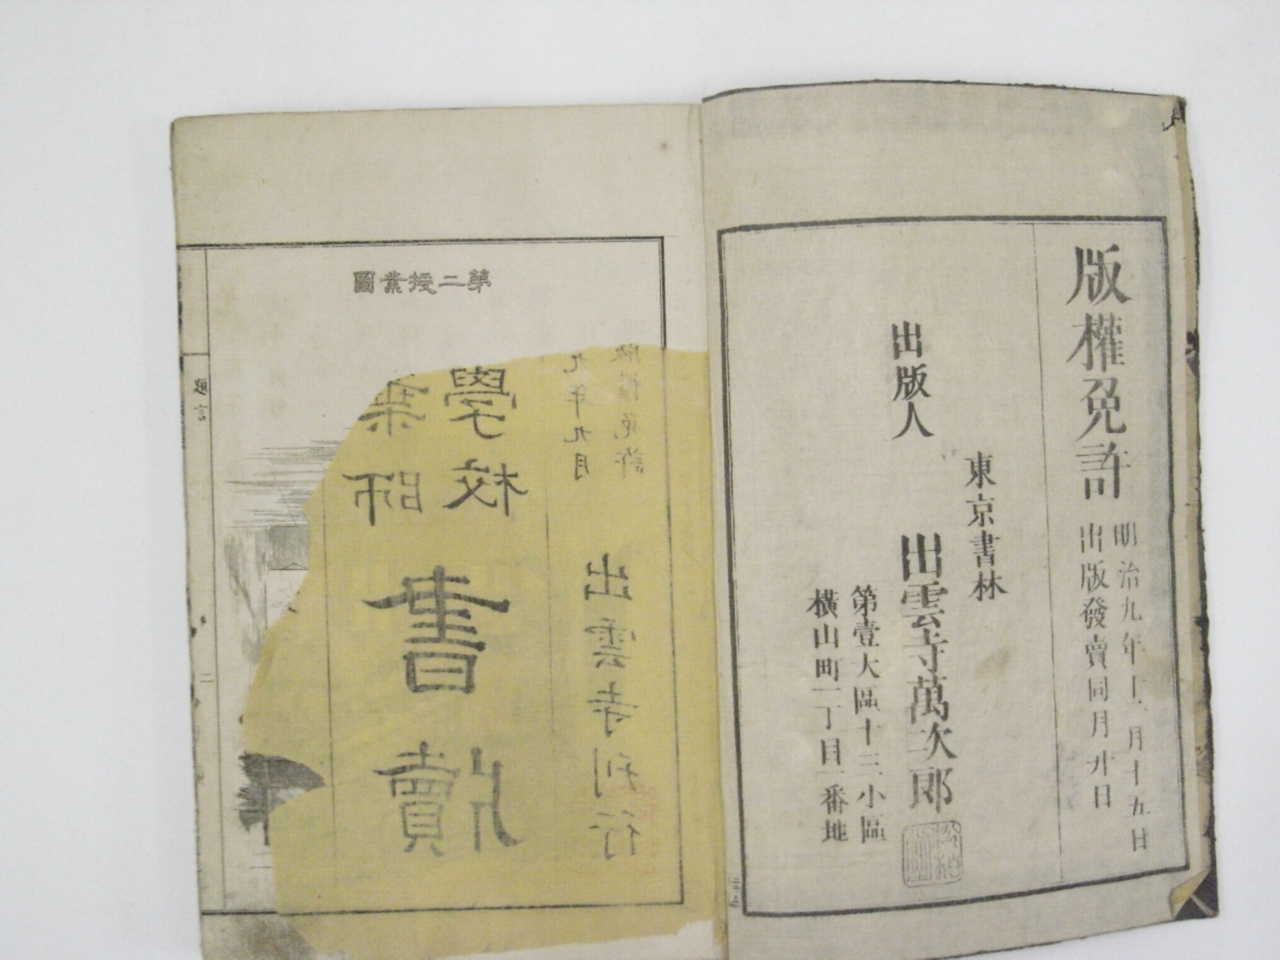 版權免許
明治九年十一月十五日
出版發賣同月廿日
東京書林
出版人 出雲寺萬次郎
第壹大區十三小區
横山町一丁目一番地
第二授業圖
業師
學校
書牘
九年九月
版權免許
出雲寺刊行
題言
二